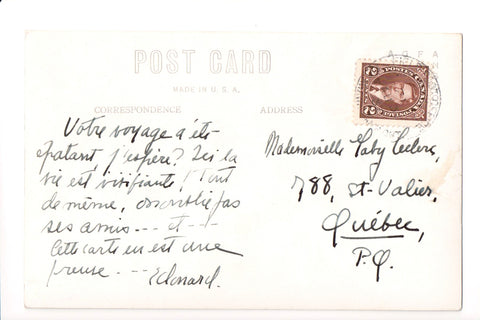 POST CARD
AGFA
MADE IN U.S.A.
CORRESPONDENCE
ADDRESS
POSTES CANADA POSTAGE
2 2
Votre voyage a été
épatant, j'espère? Ici la
vie est vivifiante! Tout
de même, on oublie pas
ses amis --- et ---
Cette carte en est une
preuve. --- Edouard.
Mademoiselle Gaby Leclerc,
788, St-Valier,
Québec,
P.Q.